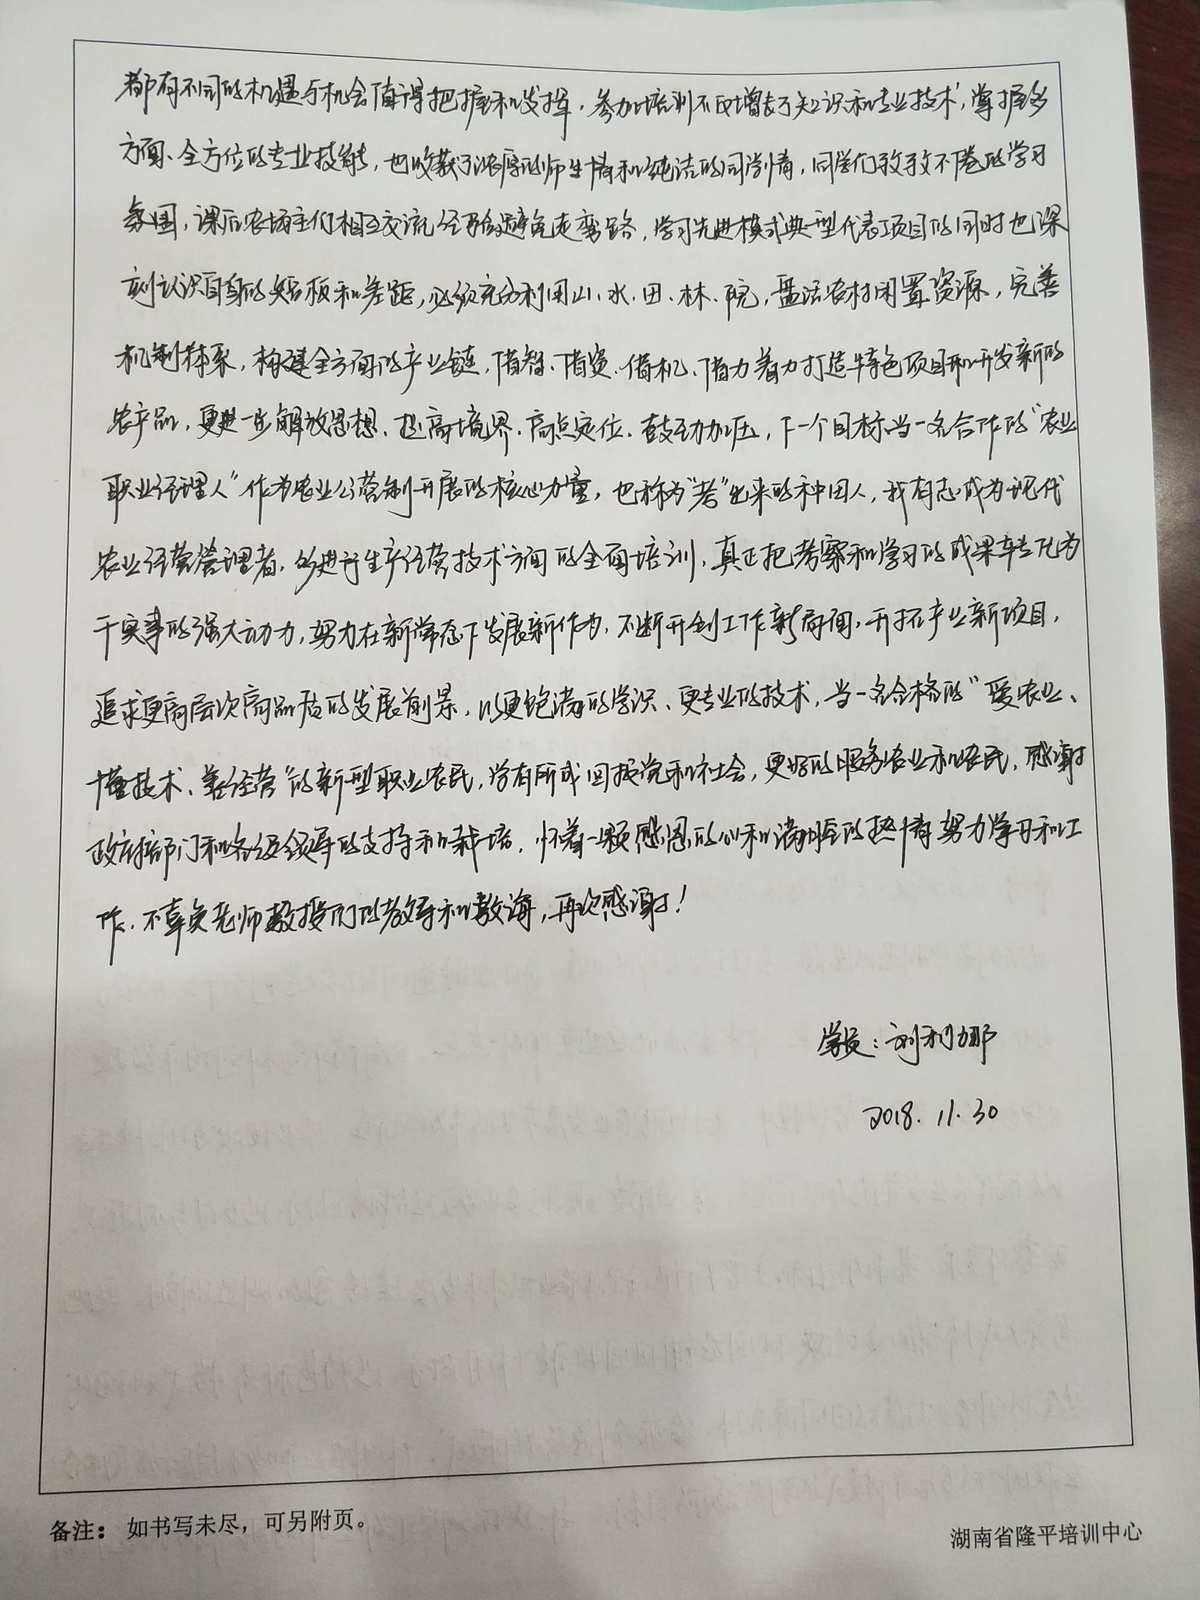 都有不同的机遇与机会值得把握和发挥，参加培训不仅增长了知识和专业技术，掌握多
方面、全方位的专业技能，也收获了浓厚的师生情和纯洁的同学情，同学们孜孜不倦的学习
氛围，课后农场主们相互交流经验避免走弯路，学习先进模式典型代表项目的同时也深
刻认识自身的短板和差距，必须充分利用山、水、田、林、院，盘活农村闲置资源，完善
机制体系，构建全方面的产业链，借智、借资、借机、借力着力打造特色项目和开发新的
农产品，更进一步解放思想、提高境界、高点定位、鼓劲加压，下一个目标当一名合作的“农业
职业经理人”作为农业公营制开展的核心力量，也称为“考”出来的种田人，我有志成为现代
农业经营管理者，多进行生产经营技术方面的全面培训，真正把考察和学习的成果转化为
干实事的强大动力，努力在新常态下发展新作为，不断开创工作新局面，开拓产业新项目，
追求更高层次高品质的发展前景，以更饱满的学识、更专业的技术，当一名合格的“爱农业、
懂技术、善经营”的新型职业农民，学有所成回报党和社会，更好的服务农业和农民，感谢
政府部门和各级领导的支持和栽培，怀着一颗感恩的心和满腔的热情努力学习和工
作，不辜负老师教授们的教导和教诲，再次感谢！
学员：刘利娜
2018.11.30
备注： 如书写未尽，可另附页。
湖南省隆平培训中心